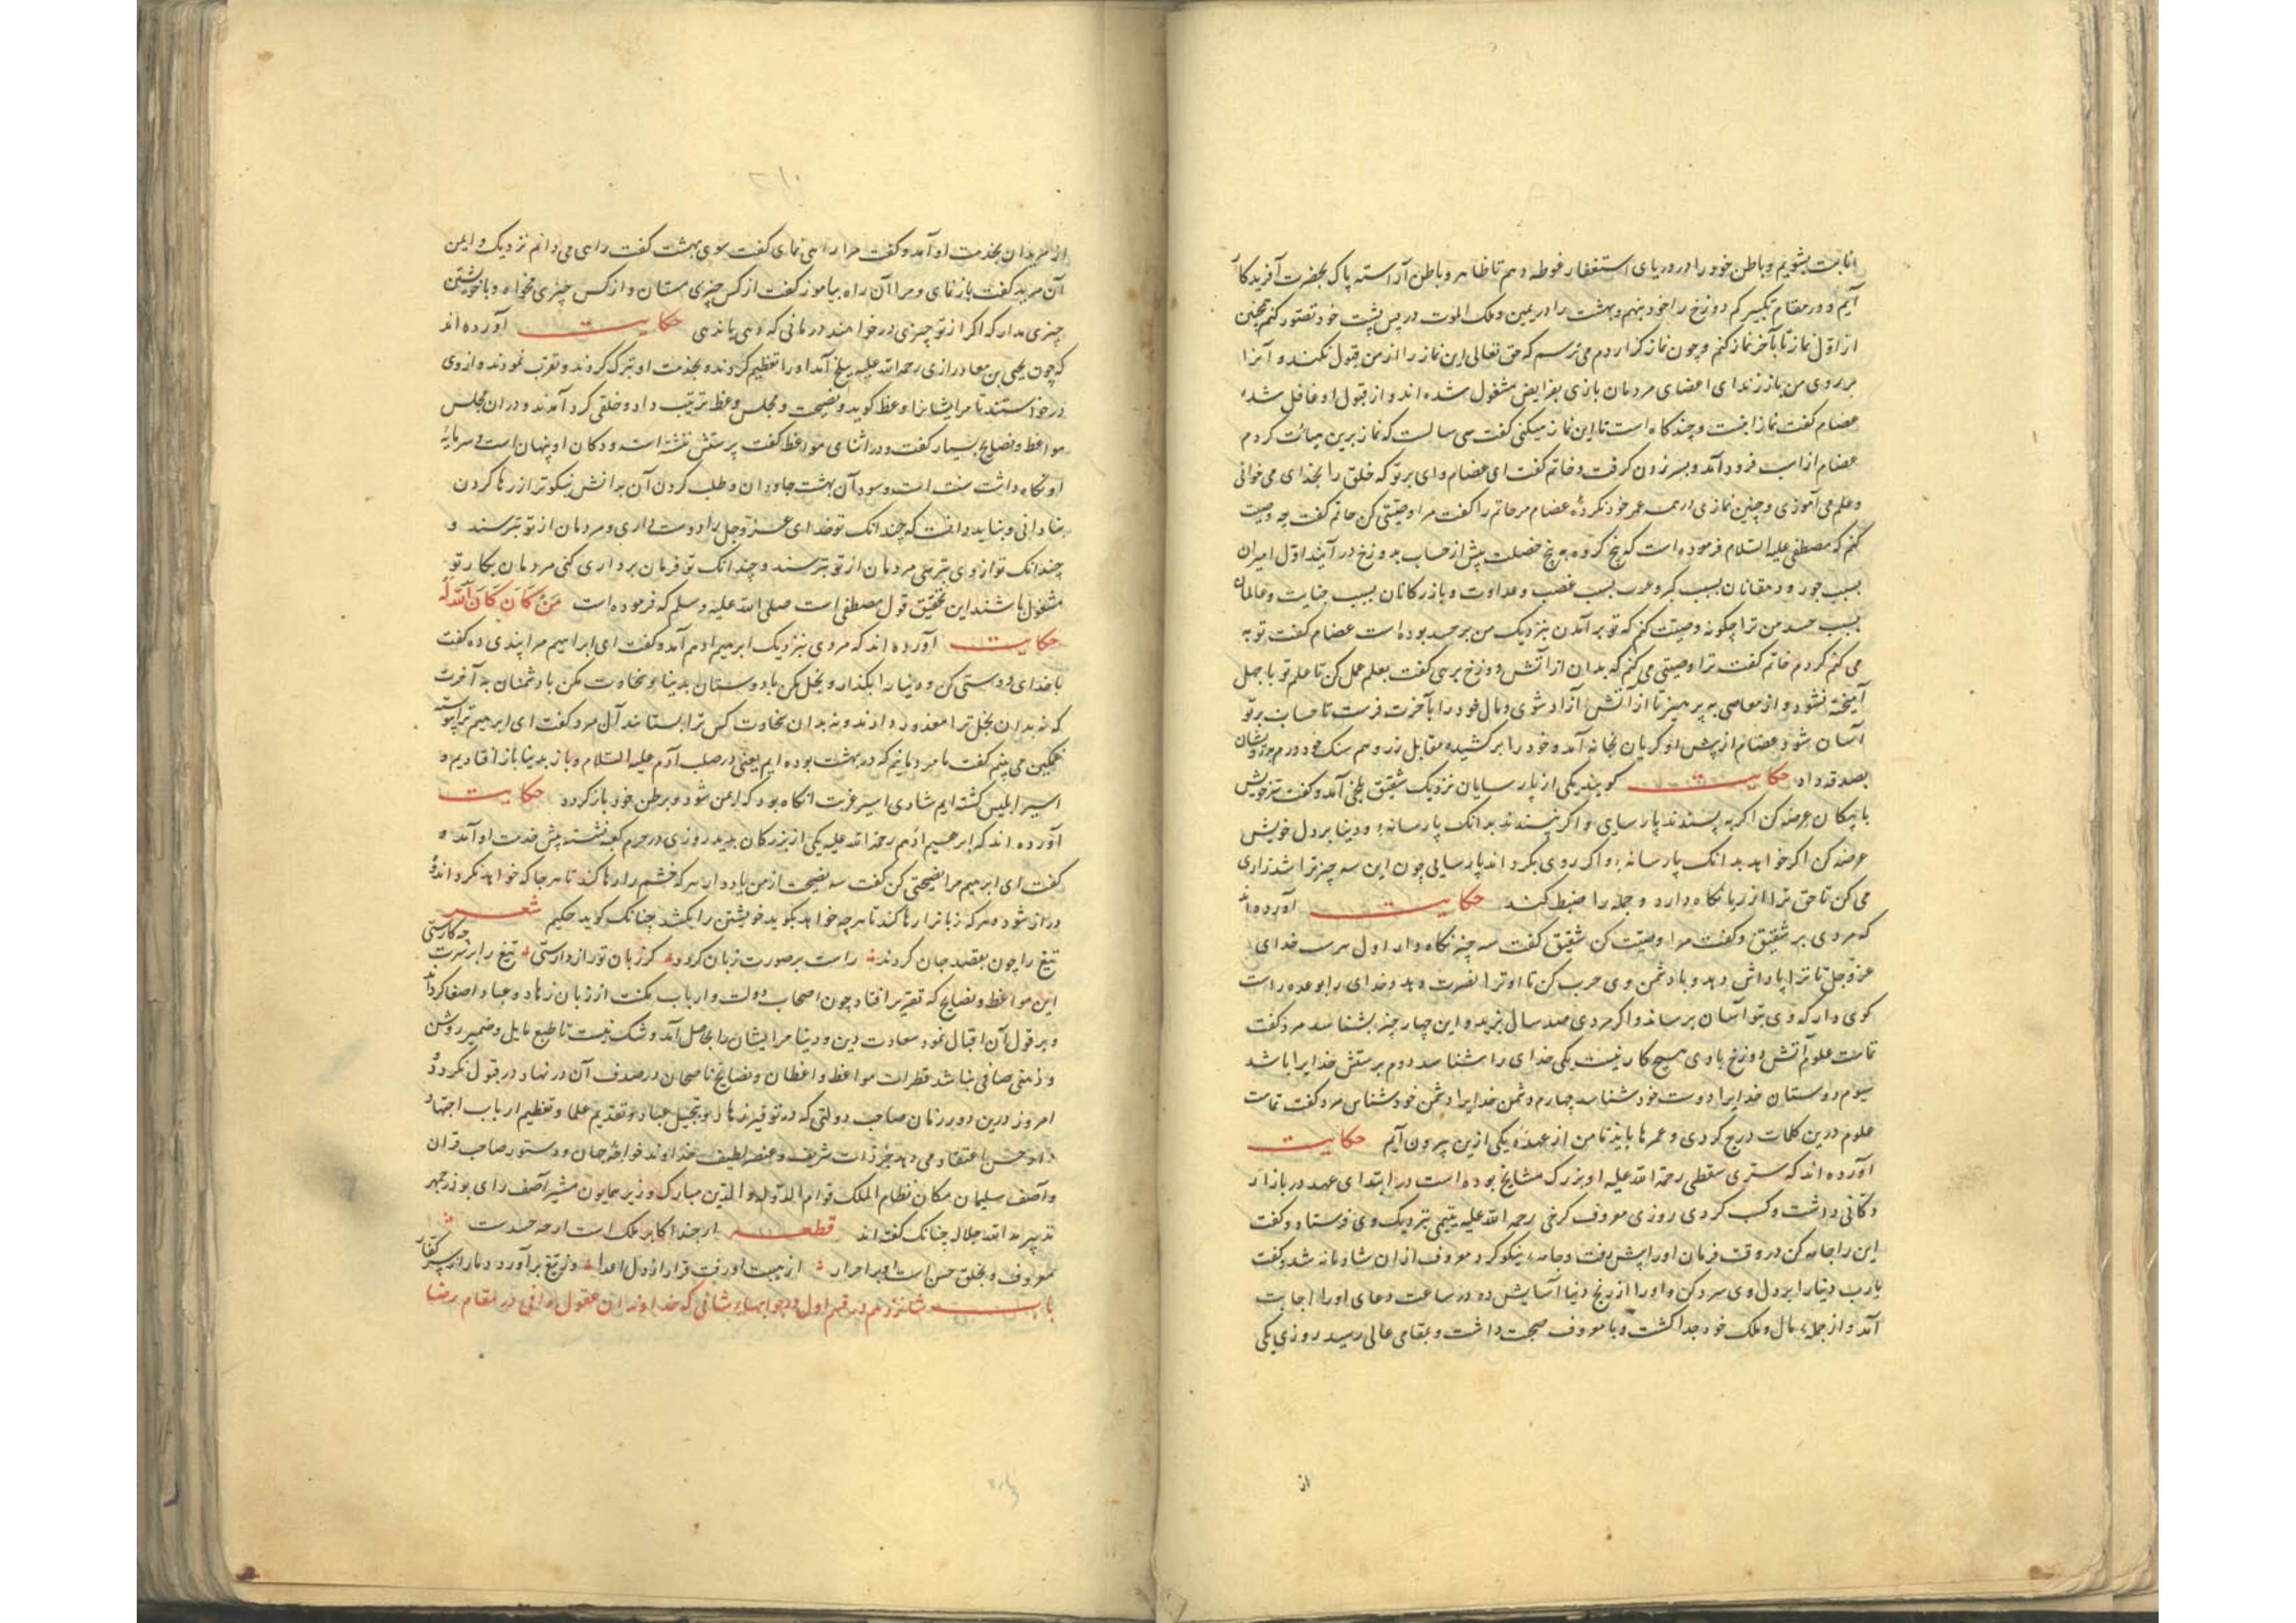 انابت بشویم و باطن خود را در دریای استغفار غوطه دهم تا ظاهر و باطن آراسته پاک بحضرت آفریدکار
آیم و در مقام تکبیر کم دوزخ را خود بنهم و بهشت را در یمین و ملک الموت در پس پشت خود تصور کنم همچنین
از اوّل نماز تا بآخر نماز کنم و چون نماز کزاردم می ترسم که حق تعالی این نماز را از من قبول نکند و آنرا
بر روی من باز زند ای اعضای مردمان بازی بفرایض مشغول شده اند و از قبول او غافل شده
عضام کفت نماز اینست و چند کاه است تا این نماز میکنی کفت سی سالست که نماز برین میأت کردم
عضام از اسب فرود آمد و بسر زدن کرفت و حاتم کفت ای عضام وای بر تو که خلق را بخدای می خوانی
و علم می آموزی و چنین نمازی در همه عمر خود نکردهٔ عضام مر حاتم را کفت مرا وصیتی کن حاتم کفت چه وصیت
کنم که مصطفی علیه السلام فرموده است که پنج کروه به پنج خصلت پیش از حساب بدوزخ در آیند اوّل امیران
بسبب جور و دهقانان بسبب کبر و عرب بسبب غضب و عداوت و بازرکانان بسبب خیانت و عالمان
بسبب حسد من ترا چکونه وصیت کنم که تو بر آمدن بنزدیک من بر حسد بوده است عضام کفت توبه
می کنم کردم حاتم کفت ترا وصیتی می کنم که بدان از آتش دوزخ برهی کفت بعلم عمل کن تا علم تو با جهل
آمیخته نشود و از معاصی به پرهیز تا از آتش آزاد شوی و مال خود را بآخرت فرست تا حساب بر تو
آسان شود عضام از پیش او کریان بخانه آمد و خود را بر کشید و مقابل زر و هم سنک خود درم بدرویشان
بصدقه داد حکایت کویند یکی از پارسایان نزدیک شقیق بلخی آمد و کفت تن خویش
با نیکان عرضه کن اکر به پسندند پارسایی و اکر نپسندند بدانک پارسا نهٔ و دنیا بر دل خویش
عرضه کن اکر خواهد بدانک پارسا نهٔ و اکر روی بکرداند پارسایی چون این سه چیز ترا شد زاری
می کن تا حق ترا از ریا نکاه دارد و جمله را ضبط کند حکایت آورده اند
که مردی بر شقیق و کفت مرا وصیت کن شقیق کفت سه چیز نکاه دار اول پرست خدای
عزّ و جلّ تا ترا پاداش دهد و با دشمن وی حرب کن تا او ترا نصرت دهد و خدای را بوعده راست
کوی دار که وی بتو آسان برساند و اکر مردی صد سال بزید و این چهار چیز بشناسد مرد کفت
تمامت علوم آتش دوزخ با وی هیچ کار نیست یکی خدای را شناسد دوم پرستش خدایرا باشد
سیوم دوستان خدایرا دوست خود شناسد چهارم دشمن خدایرا دشمن خود شناس مرد کفت تمامت
علوم درین کلمات درج کردی و عمرها باید تا من از عهدهٔ یکی ازین بیرون آیم حکایت
آورده اند که سرّی سقطی رحمة الله علیه او بزرک مشایخ بوده است در ابتدای عهد در بازار
دکانی داشت و کسب کردی روزی معروف کرخی رحمه الله علیه یتیمی بنزدیک وی فرستاد و کفت
این را جامه کن در وقت فرمان او را پیش رفت و جامهٔ نیکو کرد معروف از ان شادمانه شد و کفت
یا رب دنیا را بر دل وی سرد کن و او را از رنج دنیا آسایش ده در ساعت دعای او را اجابت
آمد و از جملهٔ مال و ملک خود جدا کشت و با معروف صحبت داشت و بمقامی عالی رسید روزی یکی
از
از مریدان بخدمت او آمد و کفت مرا راهی نمای کفت سوی بهشت کفت راهی می دانم نزدیک و ایمن
آن مرید کفت باز نمای و مرا آن راه بیاموز کفت از کس چیزی مستان و از کس چیزی مخواه و با خویشتن
چیزی مدار که اکر از تو چیزی در خواهند در مانی که دهی یا ندهی حکایت آورده اند
که چون یحیی بن معاد رازی رحمه الله علیه ببلخ آمد او را تعظیم کردند و بخدمت او تبرک کردند و تقرب نمودند و از وی
در خواستند تا مر ایشانرا وعظ کوید و نصیحت و مجلس وعظ ترتیب داد و خلقی کرد آمدند و در ان مجلس
مواعظ و نصایح بسیار کفت و در اثنای مواعظ کفت پرستش نشسته است و دکان او پنهان است و سرمایهٔ
او نکاه داشت سنت است و سود آن بهشت جاودان و طلب کردن آن بدانش نیکوتر از رها کردن
بنادانی و بباید دانست که چندانک تو خدای عزّ و جل را دوست داری مردمان از تو بترسند و
چندانک تو از وی بترسی مردمان از تو بترسند و چندانک تو فرمان برداری کنی مردمان بکار تو
مشغول باشند این تحقیق قول مصطفی است صلی الله علیه و سلم که فرموده است مَنْ کَانَ کَانَ اَللّهُ لَهُ
حکایت آورده اند که مردی بنزدیک ابرهیم ادهم آمد و کفت ای ابراهیم مرا پندی ده کفت
با خدای دوستی کن و دنیا را بکذار و بخل مکن با دوستان بدنیا و سخاوت مکن با دشمنان به آخرت
که نه بدان بخل ترا معذور دارند و نه بدان سخاوت کس ترا بستاند آن مرد کفت ای ابرهیم ترا پیوسته
غمکین می بینم کفت ما مردمانیم که در بهشت بوده ایم یعنی در صلب آدم علیه السلام و باز بدنیا باز افتادیم و
اسیر ابلیس کشته ایم شادی اسیر غربت انکاه بود که ایمن شود و بوطن خود باز کردد حکایت
آورده اند که ابرهیم ادهم رحمة الله علیه یکی از بزرکان بدید روزی در حرم کعبه نشسته پیش خدمت او آمد و
کفت ای ابرهیم مرا نصیحتی کن کفت سه نصیحت از من یاد دار هر که خشم را رها کند تا هر جا که خواهد بکرداند و
دراز شود و هر که زبانرا رها کند تا هر چه خواهد بکوید خویشتن را بکشد چنانک کوید حکیم شعر
تیغ را چون بقصد جان کردند راست بر صورت زبان کردند کر زبان تو رازدارستی تیغ را بر سرت چه کارستی
این مواعظ و نصایح که تقریر افتاد چون اصحاب دولت و ارباب مکنت از زبان زهاد و عباد اصغا کرده اند
و بر قول آن اقبال نمود سعادت دین و دنیا مر ایشان را بحاصل آمد و شک نیست تا طبع مایل و ضمیر روشن
و ذهنی صافی نباشد قطرات مواعظ واعظان و نصایح ناصحان در صدف آن در نهاد در قبول نکردد و
امروز درین دور زمان صاحب دولتی که در توقیر زهاد و تبجیل عباد و تقدیم علما و تعظیم ارباب اجتهاد
داد حسن اعتقاد می دهد جز ذات شریف و عنصر لطیف خداوند خواجهٔ جهان و دستور صاحب قران
و آصف سلیمان مکان نظام الملک قوام الدوله و الدین مبارک وزیر همایون مشیر آصف رای بوزرجمهر
تدبیر مد الله جلاله چنانک کفته اند قطعه ار چند اکابر ملک است
معروف و بخلق حسن است او بر احرار از هیبت او رفت قرار از دل اعدا وز تیغ بر آورد دمار از سر کفار
باب شانزدهم در قسم اول در جوابهاء شافی که خداوندان عقول وافی در مقام رضا